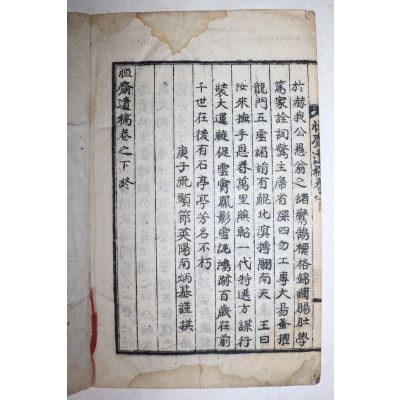 於赫我公恩翁之諸鸞鵠標格錦繡腸肚學
篤家詮詞驚主席省深四勿工專大易蚤擢
龍門五雲媚有鯤北溟搏闢南天 王曰
汝來撫手恩眷萬里無
一代特選方謀行
裝大運
促雲霄鳳影雪泥鴻跡百歲在前
千世在後有石亭亭芳名不朽
庚子流頭節英陽南炳基謹撰
恒齋遺稿卷之下終